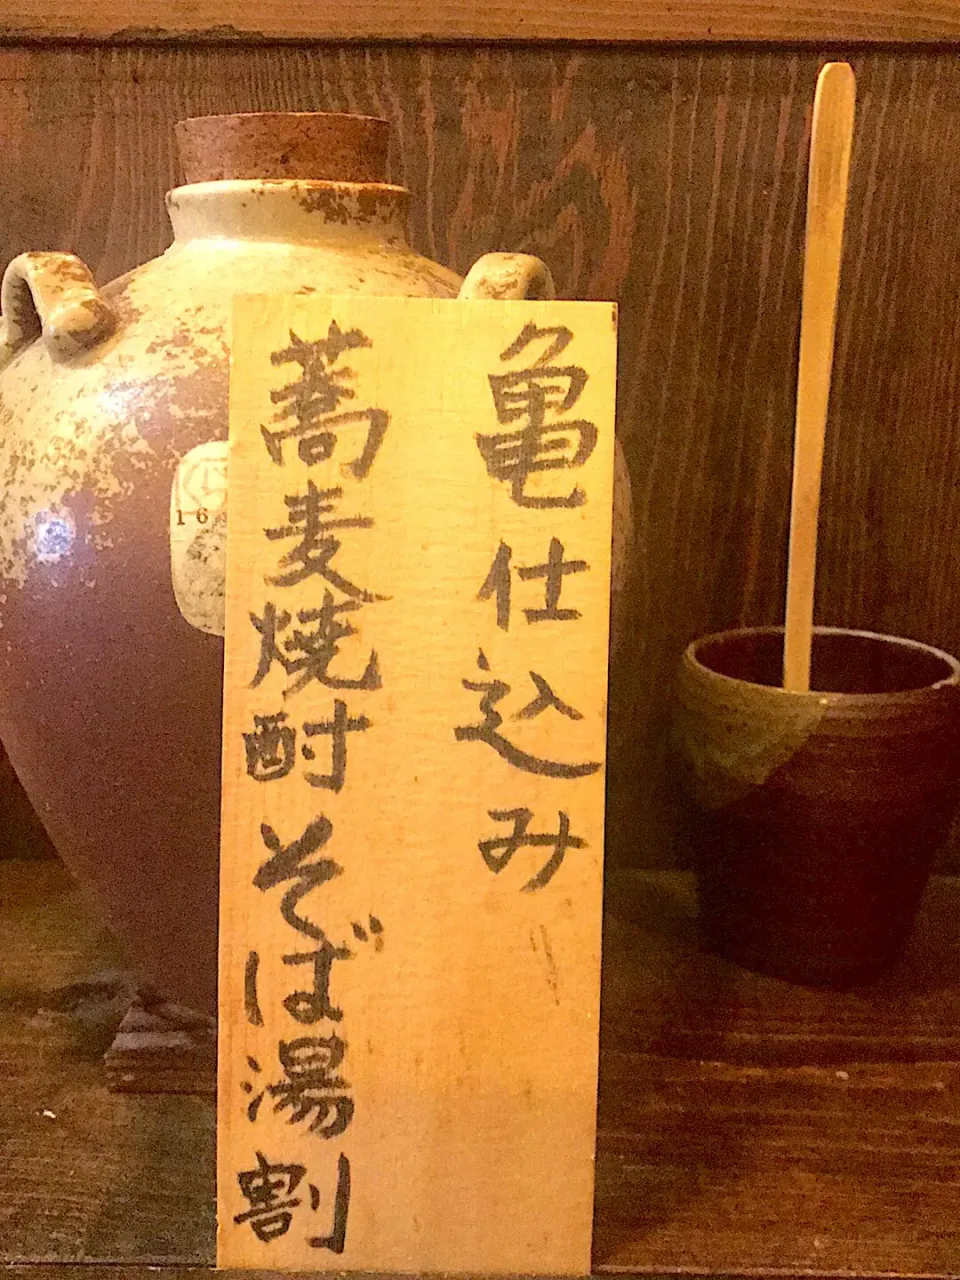 亀仕込み
蕎麦焼酎そば湯割
16